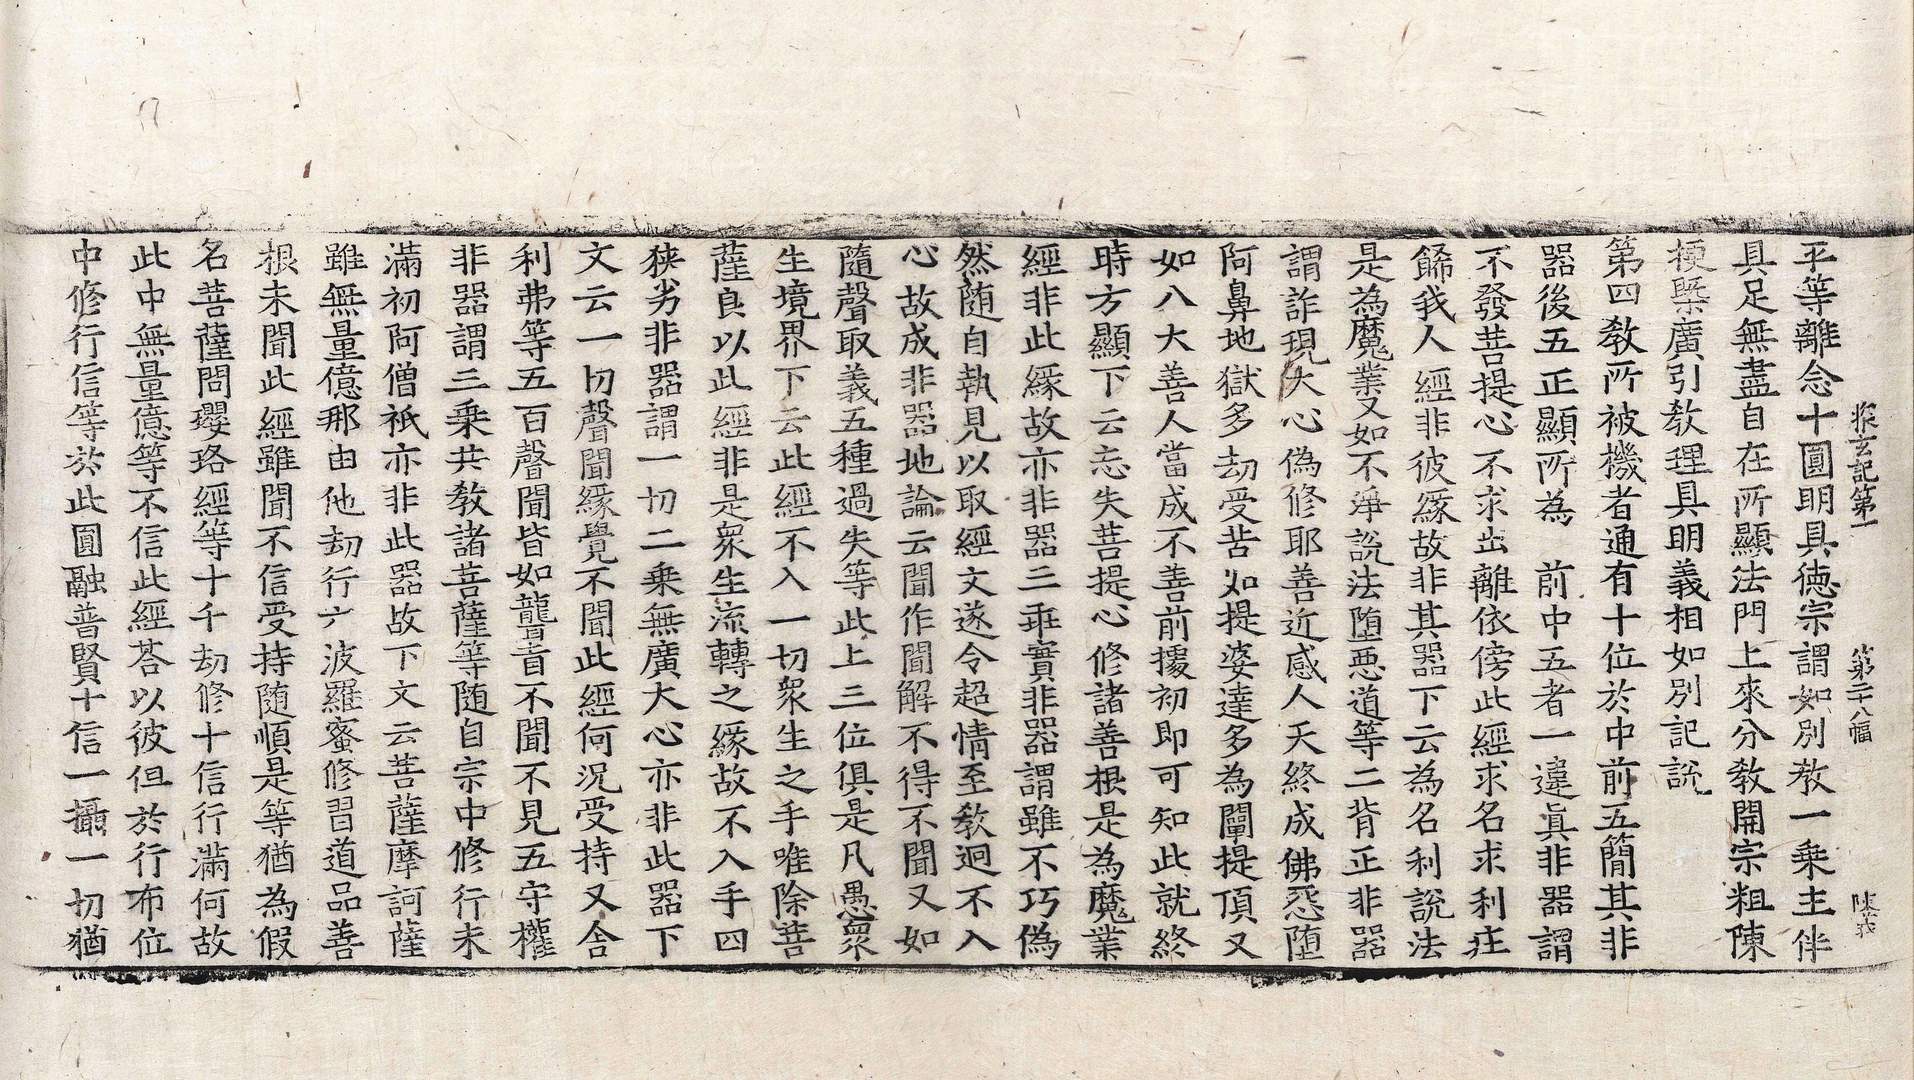 探玄記第一　第二十八幅　陳英
平等離念十圓明具徳宗謂如別教一乗主伴
具足無盡自在所顯法門上來分教開宗粗陳
梗槩廣引教理具明義相如別記説
第四教所被機者通有十位於中前五簡其非
器後五正顯所為　前中五者一違眞非器謂
不發菩提心不求出離依傍此經求名求利莊
餙我人經非彼緣故非其器下云為名利説法
是為魔業又如不淨説法堕惡道等二背正非器
謂詐現大心偽修耶善近感人天終成佛惡堕
阿鼻地獄多劫受苦如提婆達多為闡提頂又
如八大善人當成不善前擾初即可知此就終
時方顯下云忘失菩提心修諸善根是為魔業
經非此緣故亦非器三乖實非器謂雖不巧偽
然随自執見以取經文遂令超情至教迴不入
心故成非器地論云聞作聞解不得不聞又如
隨聲取義五種過失等此上三位俱是凡愚衆
生境界下云此經不入一切衆生之手唯除菩
薩良以此經非是衆生流轉之緣故不入手四
狭劣非器謂一切二乗無廣大心亦非此器下
文云一切聲聞緣覺不聞此經何況受持又舍
利弗等五百聲聞皆如聾盲不聞不見五守權
非器謂三乗共教諸菩薩等随自宗中修行未
滿初阿僧祇亦非此器故下文云菩薩摩訶薩
雖無量億那由他劫行六波羅蜜修習道品善
根未聞此經雖聞不信受持随順是等猶為假
名菩薩問瓔珞經等十千劫修十信行滿何故
此中無量億等不信此經荅以彼但於行布位
中修行信等於此圓融普賢十信一攝一切猶